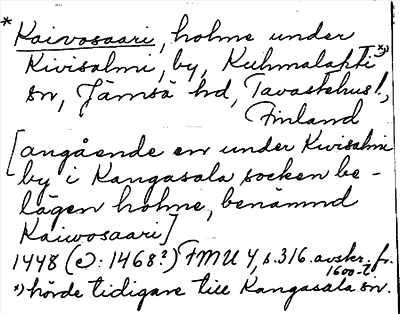 * Kaivosaari, holme under
Kivisalmi, by, Kuhmalahti *)
sn, Jämsä hd, Tavastehus l.,
Finland
[angående en under Kivisalmi
by i Kangasala socken be-
lägen holme, benämnd
Kaiwosaari]
1448 (ɔ: 1468?) FMU 4, s. 316. avskr. fr.
1600-t.
*) hörde tidigare till Kangasala sn.